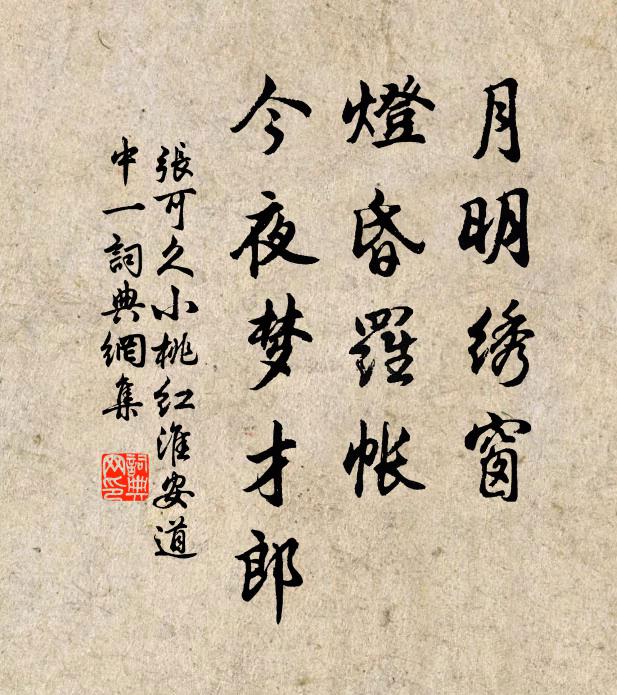 月明绣窗
燈昏羅帐
今夜梦才郎
張可久小桃红淮安道
中一詞典網集
詞典网印